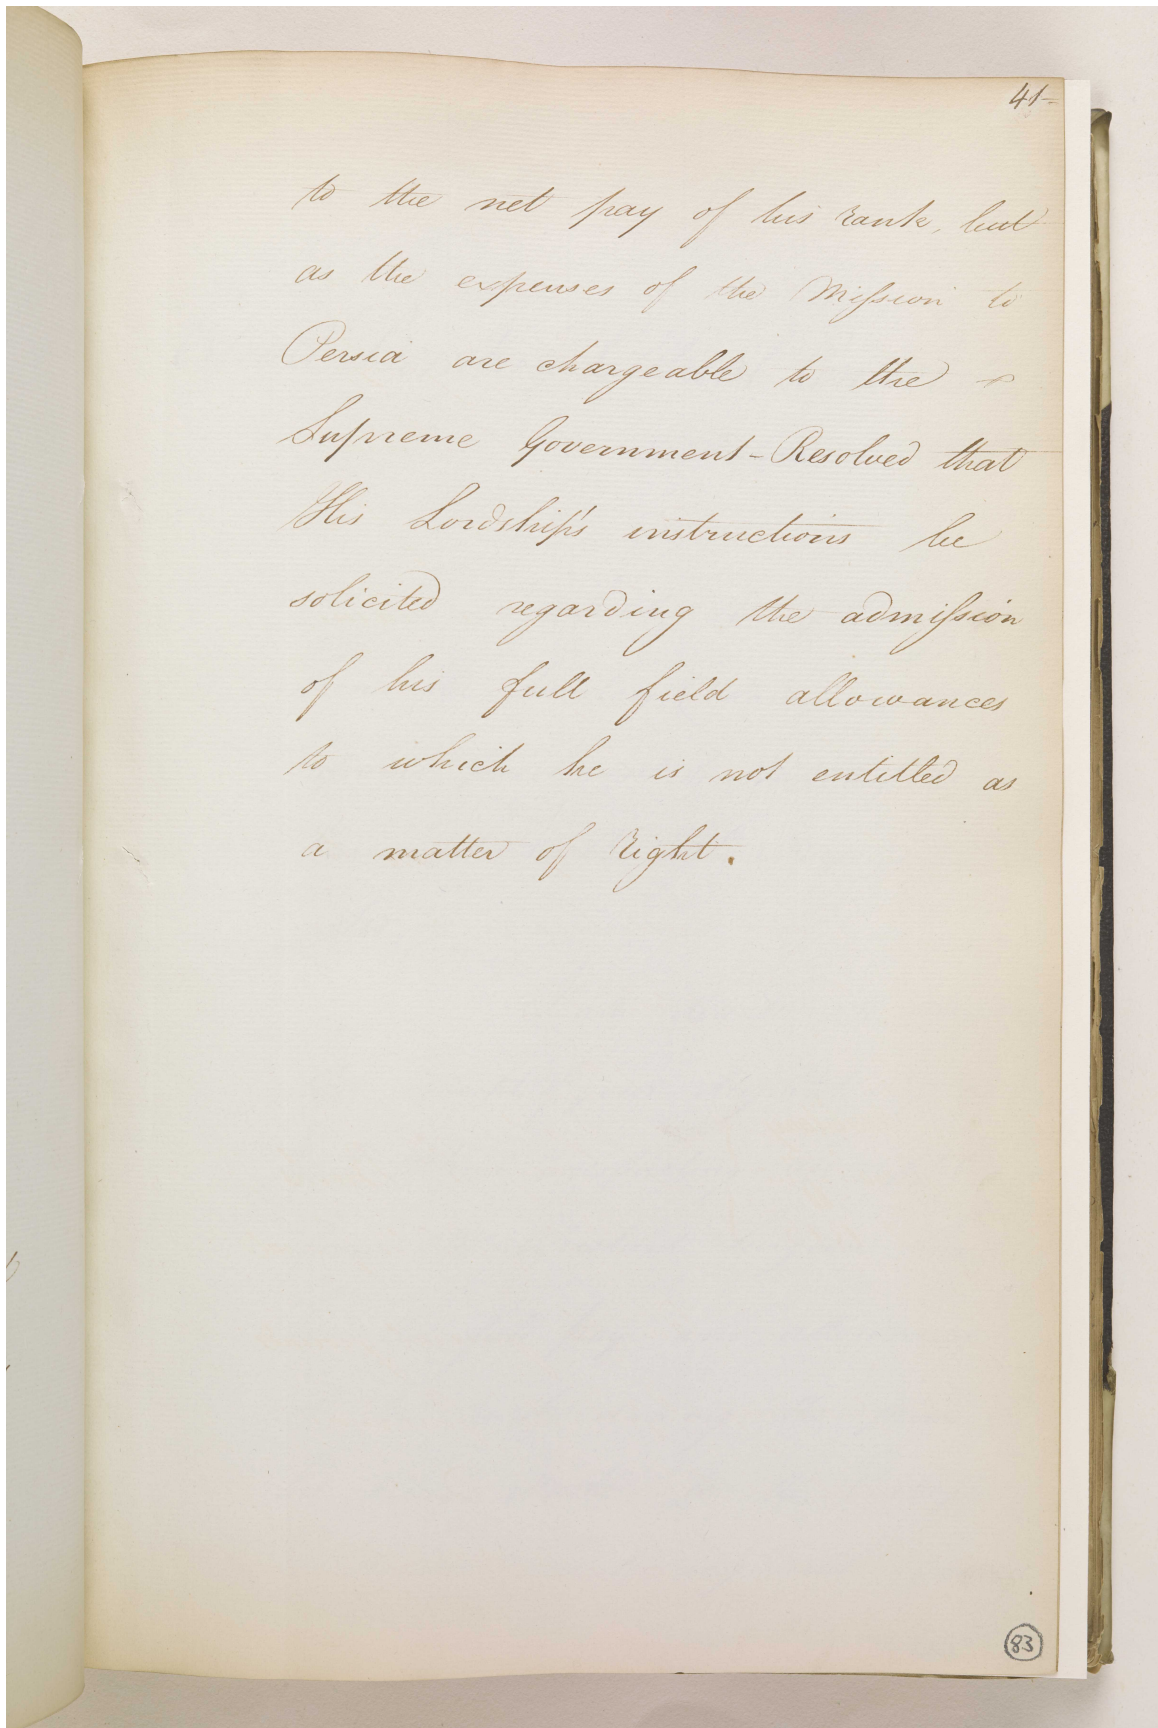 41-
to the net pay of his rank, but
as the expenses of the Mission to
Persia are chargeable to the
Supreme Government - Resolved that
His Lordship's instructions be
solicited regarding the admission
of his full field allowances
to which he is not entitled as
a matter of right.
83